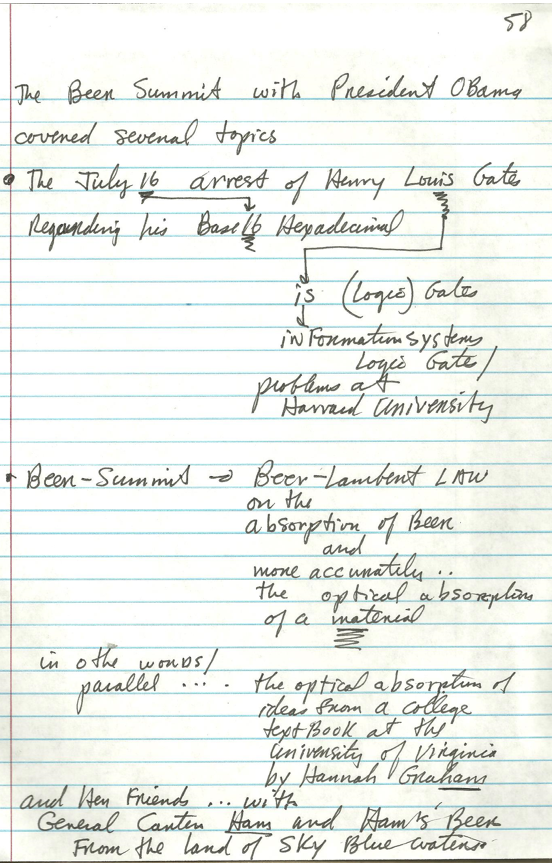 58
The Beer Summit with President Obama
covered several topics
• The July 16 arrest of Henry Louis Gates
Regarding his Base 16 Hexadecimal
is (Logic) Gates
inFormation systems
Logic Gate/
problems at
Harvard University
• Beer-Summit → Beer-Lambert LAW
on the
absorption of Beer
and
more accurately ..
the optical absorption
of a material
in othe words/
parallel .... the optical absorption of
ideas from a college
textBook at the
University of Virginia
by Hannah Graham
and Her Friends ... with
General Carter Ham and Ham's Beer
From the land of Sky Blue waters